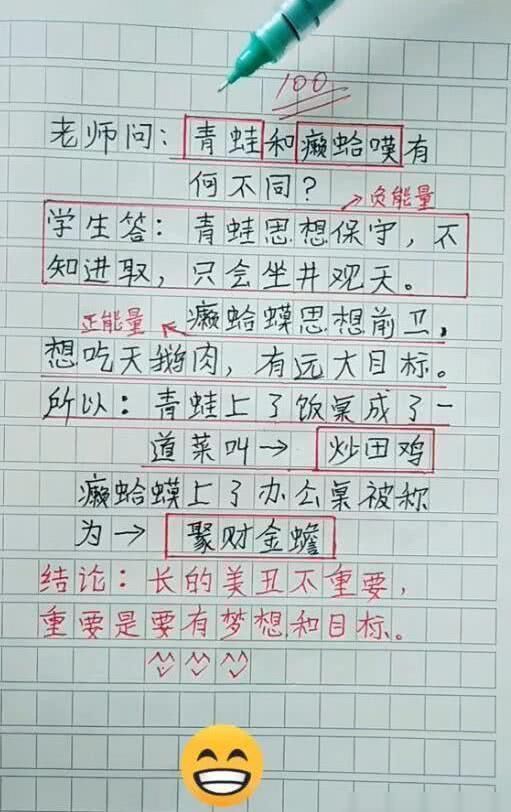 100
老师问：青蛙和癞蛤嗼有
何不同？
→负能量
学生答：青蛙思想保守，不
知进取，只会坐井观天。
正能量← 癞蛤蟆思想前卫，
想吃天鹅肉，有远大目标。
所以：青蛙上了饭桌成了一
道菜叫→ 炒田鸡
癞蛤蟆上了办公桌被称
为→ 聚财金蟾
结论：长的美丑不重要，
重要是要有梦想和目标。